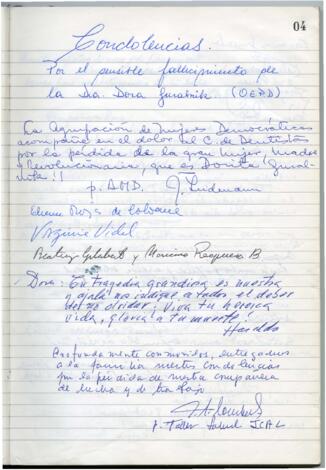 04
Condolencias.
Por el sensible fallecimiento de
la Dra. Dora Guralnik (QEPD)
La Agrupación de Mujeres Democráticas
acompaña en el dolor al C. de Dentistas
por la pérdida de la gran mujer, madre
y Revolucionaria, que es Dorita Gural-
nik!!
p. AMD.
Virginia Vidal
Beatriz y Mariano B
Dora: Tu tragedia grandiosa es nuestra
y ojalá nos indique a todos el deber
de no olvidar ¡Viva tu heroica
vida, gloria a tu muerte!
Haroldo
Profundamente conmovidos, entregamos
a la familia nuestras condolencias
por la pérdida de nuestra compañera
de lucha y de trabajo
p. Taller Salud